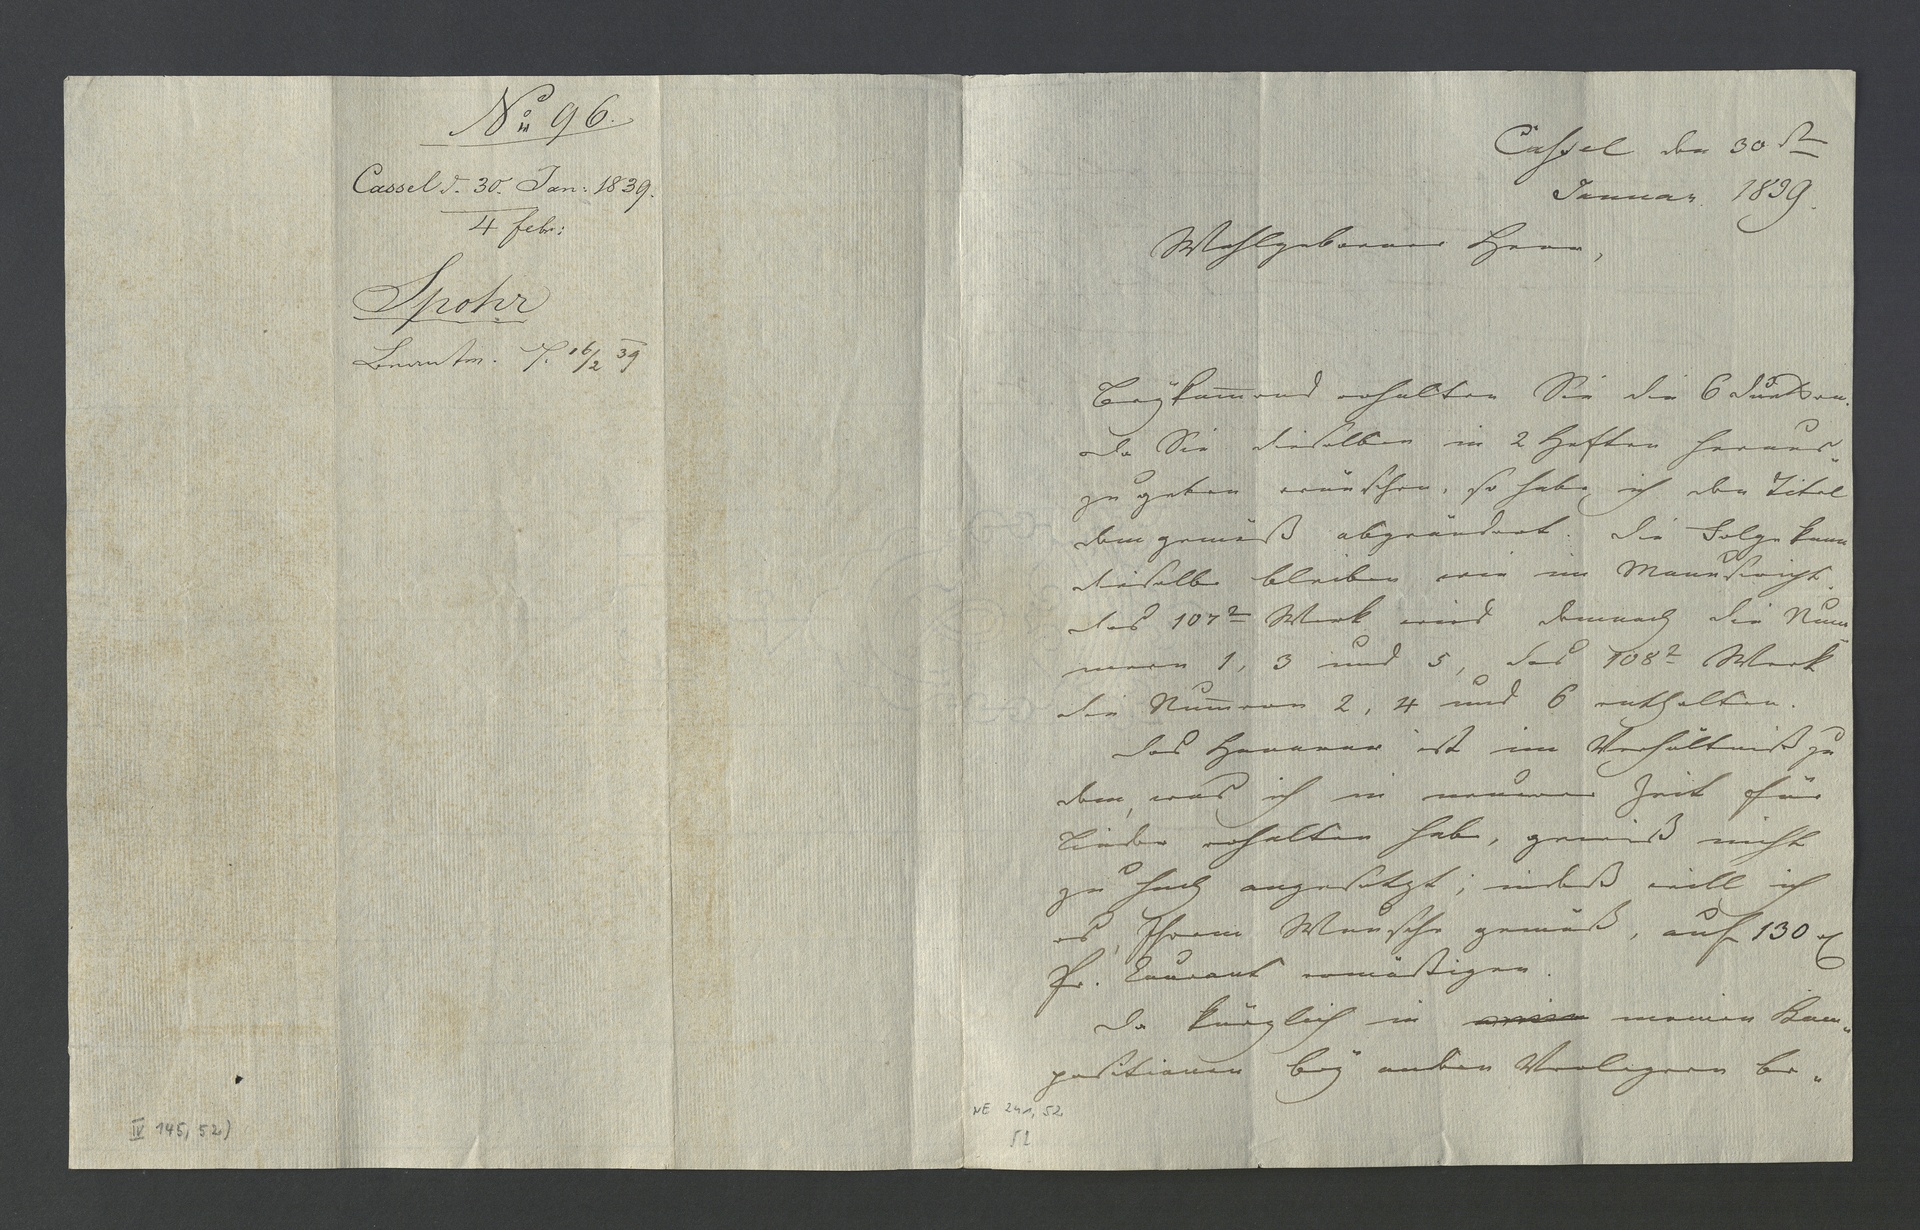 No 96.
Cassel d. 30. Jan: 1839.
4 febr:
Spohr
Beantw. 16/2 39
IV 145, 52)
Cassel den 30sten
Januar 1839.
Wohlgeborner Herr,
Beykom̅end erhalten Sie die 6 Duetten.
Da Sie dieselben in 2 Heften heraus-
zugeben wünschen, so habe ich den Titel
demgemäß abgeändert. Die Folge kann
dieselbe bleiben wie im Manuscript.
Das 107te Werk wird demnach die Num-
mern 1, 3 und 5, das 108te Werk
die Num̅ern 2, 4 und 6 enthalten.
Das Honorar ist im Verhältniß zu
dem, was ich in neuerer Zeit für
Lieder erhalten habe, gewiß nicht
zu hoch angesetzt; indeß will ich
es, Ihrem Wunsche gemäß, auf 130 rt
Pr. Courant ermäßigen.
Da kürzlich in meinen Kom-
positionen bey andern Verlegern be-
NE 241, 52
52